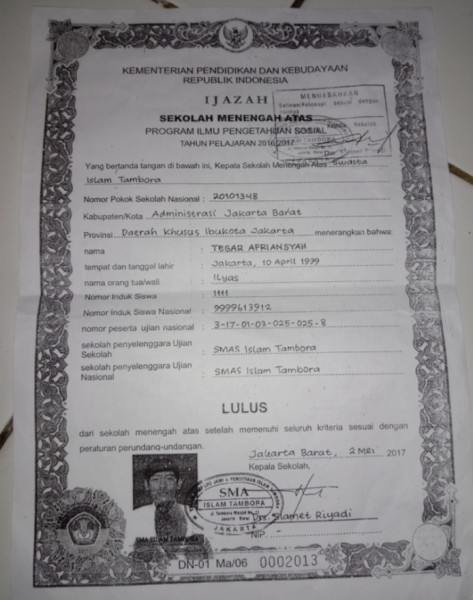 KEMENTERIAN PENDIDIKAN DAN KEBUDAYAAN
REPUBLIK INDONESIA
IJAZAH
MENGESAHKAN
SEKOLAH MENENGAH ATAS
PROGRAM ILMU PENGETAHUAN SOSIAL
TAHUN PELAJARAN 2016/2017
Yang bertanda tangan di bawah ini, Kepala Sekolah Menengah Atas Swasta
Islam Tambora
Nomor Pokok Sekolah Nasional : 20101348
Kabupaten/Kota Administrasi Jakarta Barat
Provinsi Daerah Khusus Ibukota Jakarta menerangkan bahwa:
nama : TEGAR APRIANSYAH
tempat dan tanggal lahir : Jakarta, 10 April 1999
nama orang tua/wali : ILyas
Nomor Induk Siswa : 1111
Nomor Induk Siswa Nasional : 9999613912
nomor peserta ujian nasional : 3-17-01-03-025-025-8
sekolah penyelenggara Ujian Sekolah : SMAS Islam Tambora
sekolah penyelenggara Ujian Nasional : SMAS Islam Tambora
LULUS
dari sekolah menengah atas setelah memenuhi seluruh kriteria sesuai dengan
peraturan perundang-undangan.
Jakarta Barat, 2 Mei 2017
Kepala Sekolah,
SMA
ISLAM TAMBORA
JAKARTA
Drs. Slamet Riyadi
NIP
SMA ISLAM TAMBORA
DN-01 Ma/06 0002013